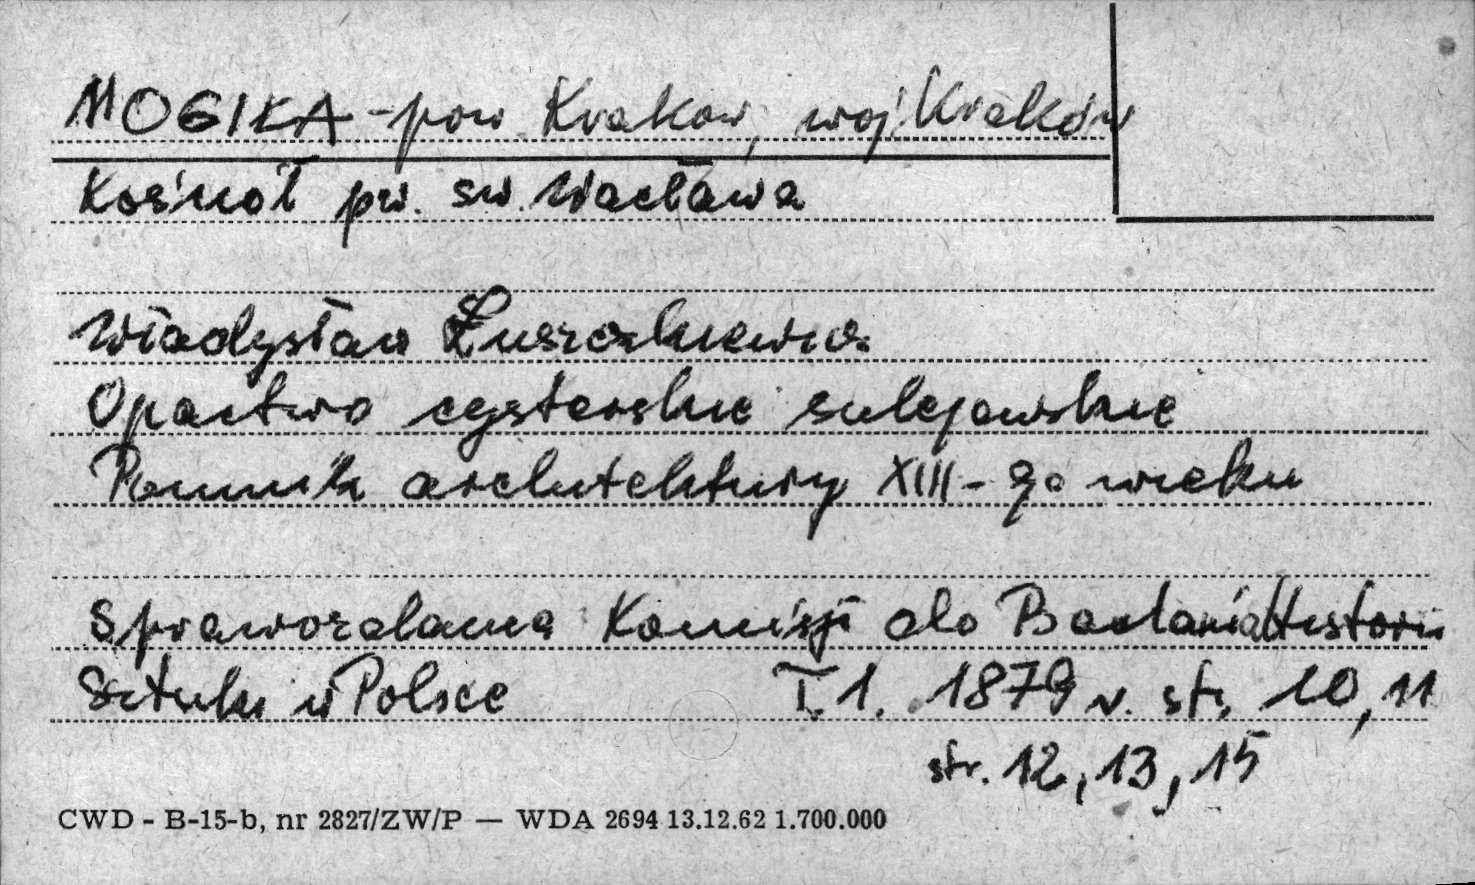 MOGIŁA - pow. Kraków, woj. Kraków
Kościół pw. św. Wacława
Władysław Łuszczkiewicz
Opactwo cysterskie sulejowskie
Pomnik architektury XIII-go wieku
Sprawozdania Komisji do Badania Historii
Sztuki w Polsce T. 1. 1879 r. str. 10, 11
str. 12, 13, 15
CWD - B-15-b, nr 2827/ZW/P — WDA 2694 13.12.62 1.700.000